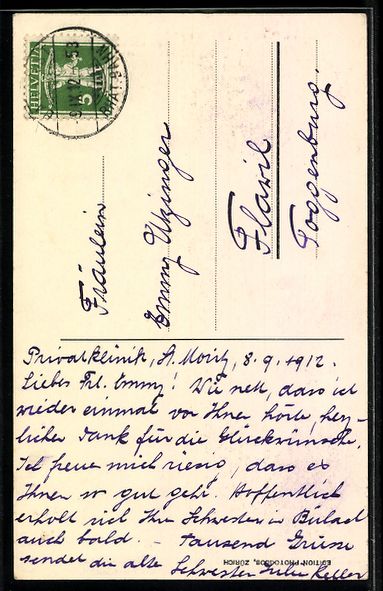 HELVETIA
5
Fräulein
Emmy Utzinger
Flawil
Toggenburg.
Privatklinik, St. Moritz, 8.9.1912.
Liebes Frl. Emmy! Wie nett, dass ich
wieder einmal von Ihnen hörte, herz-
licher Dank für die Glückwünsche.
Ich freue mich riesig, dass es
Ihnen so gut geht. Hoffentlich
erholt sich Ihre Schwester in Bülach
auch bald. — Tausend Grüsse
sendet die alte Schwester Julie Keller
EDITION PHOTOGLOB, ZÜRICH